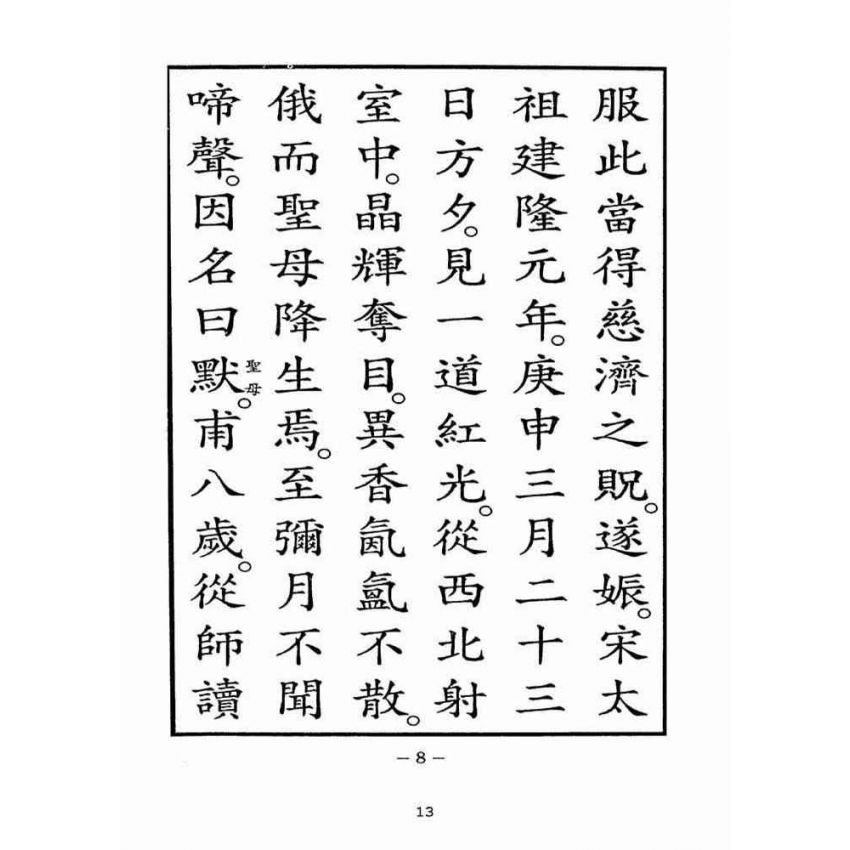 服此當得慈濟之貺。遂娠。宋太
祖建隆元年。庚申三月二十三
日方夕。見一道紅光。從西北射
室中。晶輝奪目。異香氤氳不散。
俄而聖母降生焉。至彌月不聞
啼聲。因名曰默。聖母甫八歲。從師讀
— 8 —
13